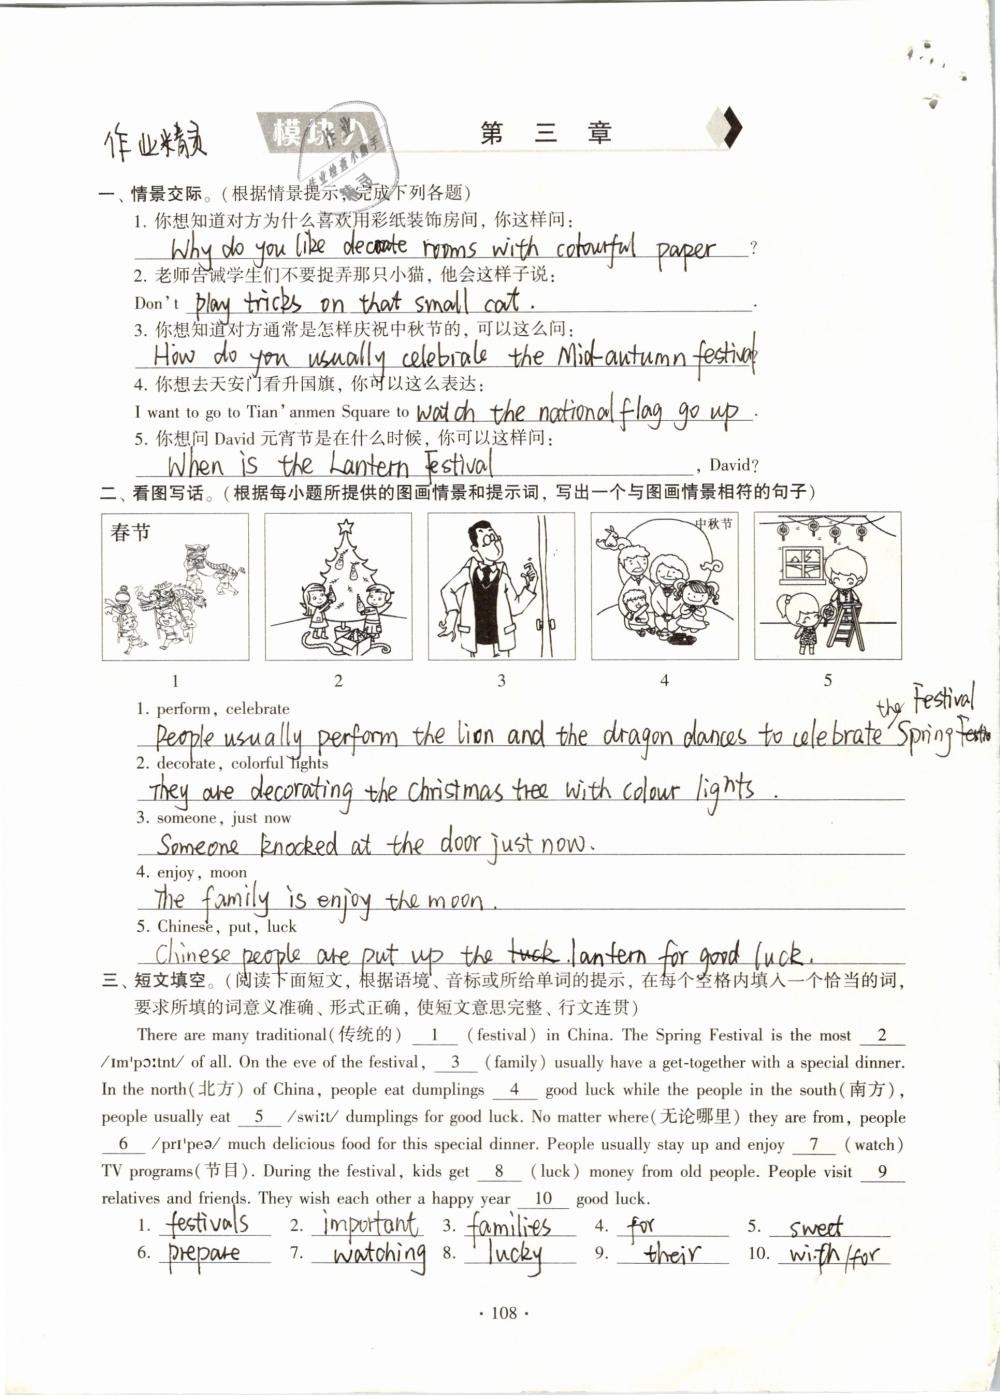 作业精灵
模块八 第三章
一、情景交际。(根据情景提示,完成下列各题)
1. 你想知道对方为什么喜欢用彩纸装饰房间,你这样问:
Why do you like decorate rooms with colourful paper ?
2. 老师告诫学生们不要捉弄那只小猫,他会这样子说:
Don't play tricks on that small cat. .
3. 你想知道对方通常是怎样庆祝中秋节的,可以这么问:
How do you usually celebrate the Mid-autumn festival
4. 你想去天安门看升国旗,你可以这么表达:
I want to go to Tian'anmen Square to watch the national flag go up .
5. 你想问 David 元宵节是在什么时候,你可以这样问:
When is the Lantern Festival , David?
二、看图写话。(根据每小题所提供的图画情景和提示词,写出一个与图画情景相符的句子)
春节
中秋节
1 2 3 4 5
1. perform, celebrate
the Festival
People usually perform the lion and the dragon dances to celebrate Spring
2. decorate, colorful lights
They are decorating the christmas tree with colour lights .
3. someone, just now
Someone knocked at the door just now.
4. enjoy, moon
The family is enjoy the moon .
5. Chinese, put, luck
Chinese people are put up the lantern for good luck.
三、短文填空。(阅读下面短文,根据语境、音标或所给单词的提示,在每个空格内填入一个恰当的词,
要求所填的词意义准确、形式正确,使短文意思完整、行文连贯)
There are many traditional(传统的) 1 (festival) in China. The Spring Festival is the most 2
/ɪm'pɔːtnt/ of all. On the eve of the festival, 3 (family) usually have a get-together with a special dinner.
In the north(北方) of China, people eat dumplings 4 good luck while the people in the south(南方),
people usually eat 5 /swiːt/ dumplings for good luck. No matter where(无论哪里) they are from, people
6 /prɪ'peə/ much delicious food for this special dinner. People usually stay up and enjoy 7 (watch)
TV programs(节目). During the festival, kids get 8 (luck) money from old people. People visit 9
relatives and friends. They wish each other a happy year 10 good luck.
1. festivals 2. important 3. families 4. for 5. sweet
6. prepare 7. watching 8. lucky 9. their 10. with/for
· 108 ·